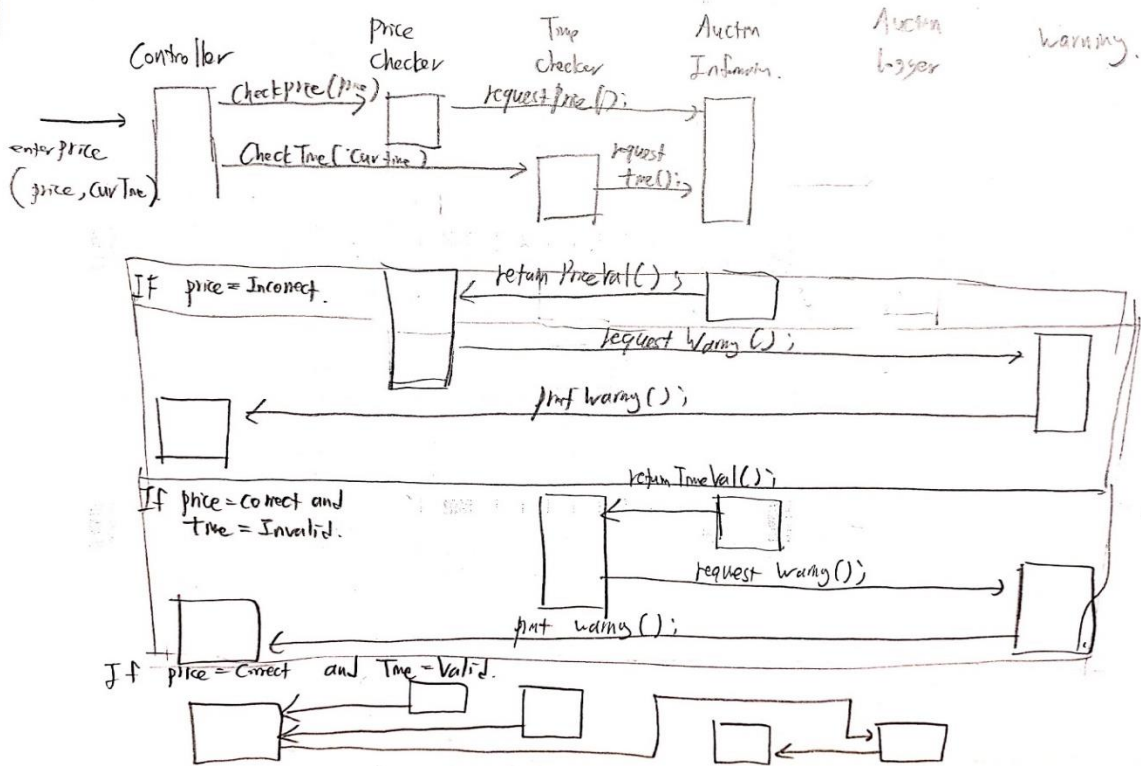 Controller
Price
checker
Time
checker
Auction
Information.
Auction
logger
Warning.
enterprice
(price, curTime)
Checkprice(price)
requestPrice();
CheckTime(curtime)
request
time();
If price = Incorrect.
return PriceVal();
request Warning();
print warning();
If price = correct and
time = Invalid.
return TimeVal();
request Warning();
print warning();
If price = Correct and Time = Valid.